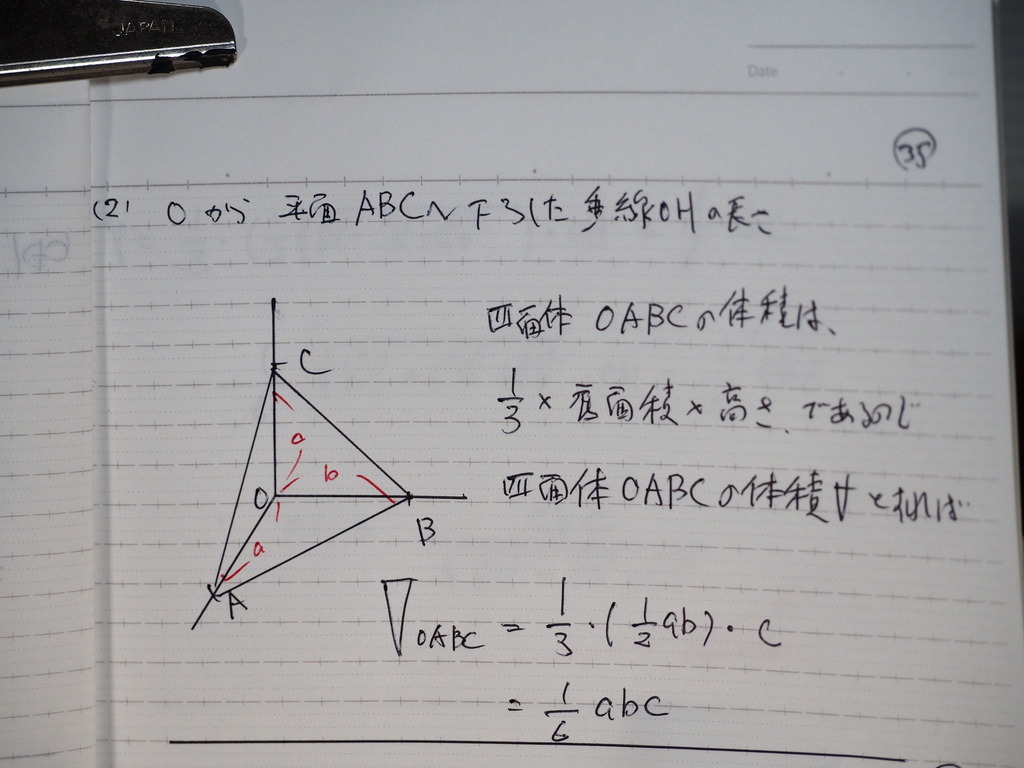 JAPAN
Date
35
(2) Oから 平面ABCへ下ろした垂線OHの長さ
四面体 OABCの体積は、
1/3 × 底面積 × 高さ、であるので
四面体OABCの体積Vとすれば
C
a
b
O
a
B
A
V_OABC = 1/3・(1/2 ab)・c
= 1/6 abc